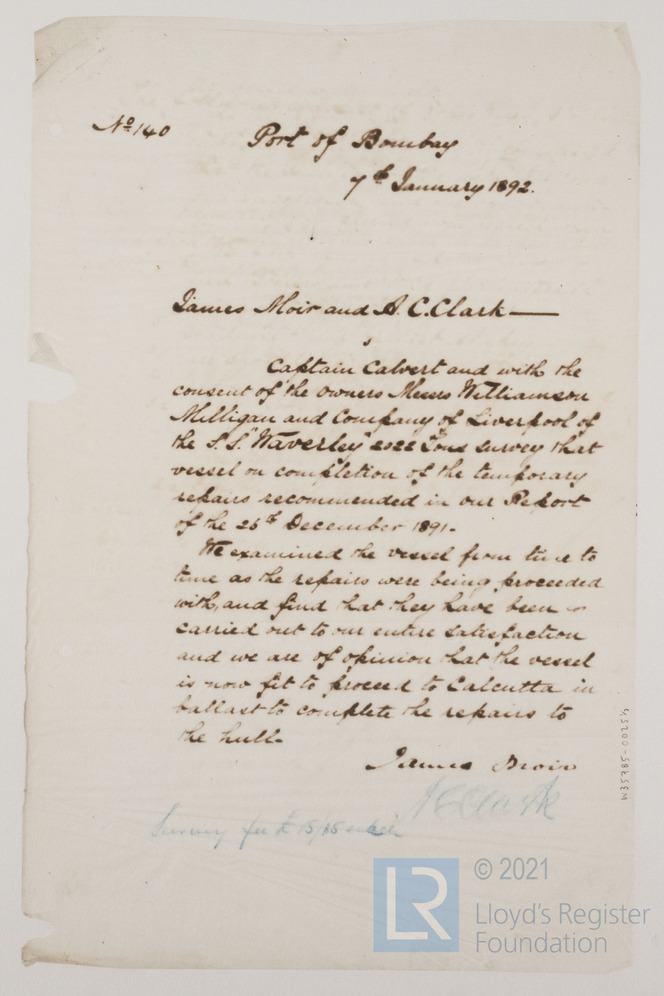 No. 140
Port of Bombay
7th January 1892.
James Moir and A. C. Clark —
Captain Calvert and with the
consent of the Owners Messrs Williamson
Milligan and Company of Liverpool of
the S.S. "Waverley" 2022 Tons survey that
vessel on completion of the temporary
repairs recommended in our Report
of the 26th December 1891.
We examined the vessel from time to
time as the repairs were being proceeded
with, and find that they have been
carried out to our entire satisfaction
and we are of opinion that the vessel
is now fit to proceed to Calcutta in
ballast to complete the repairs to
the hull.
James Moir
A C Clark
Survey fee £ 15/15
W35785-0020
LR
© 2021
Lloyd's Register
Foundation